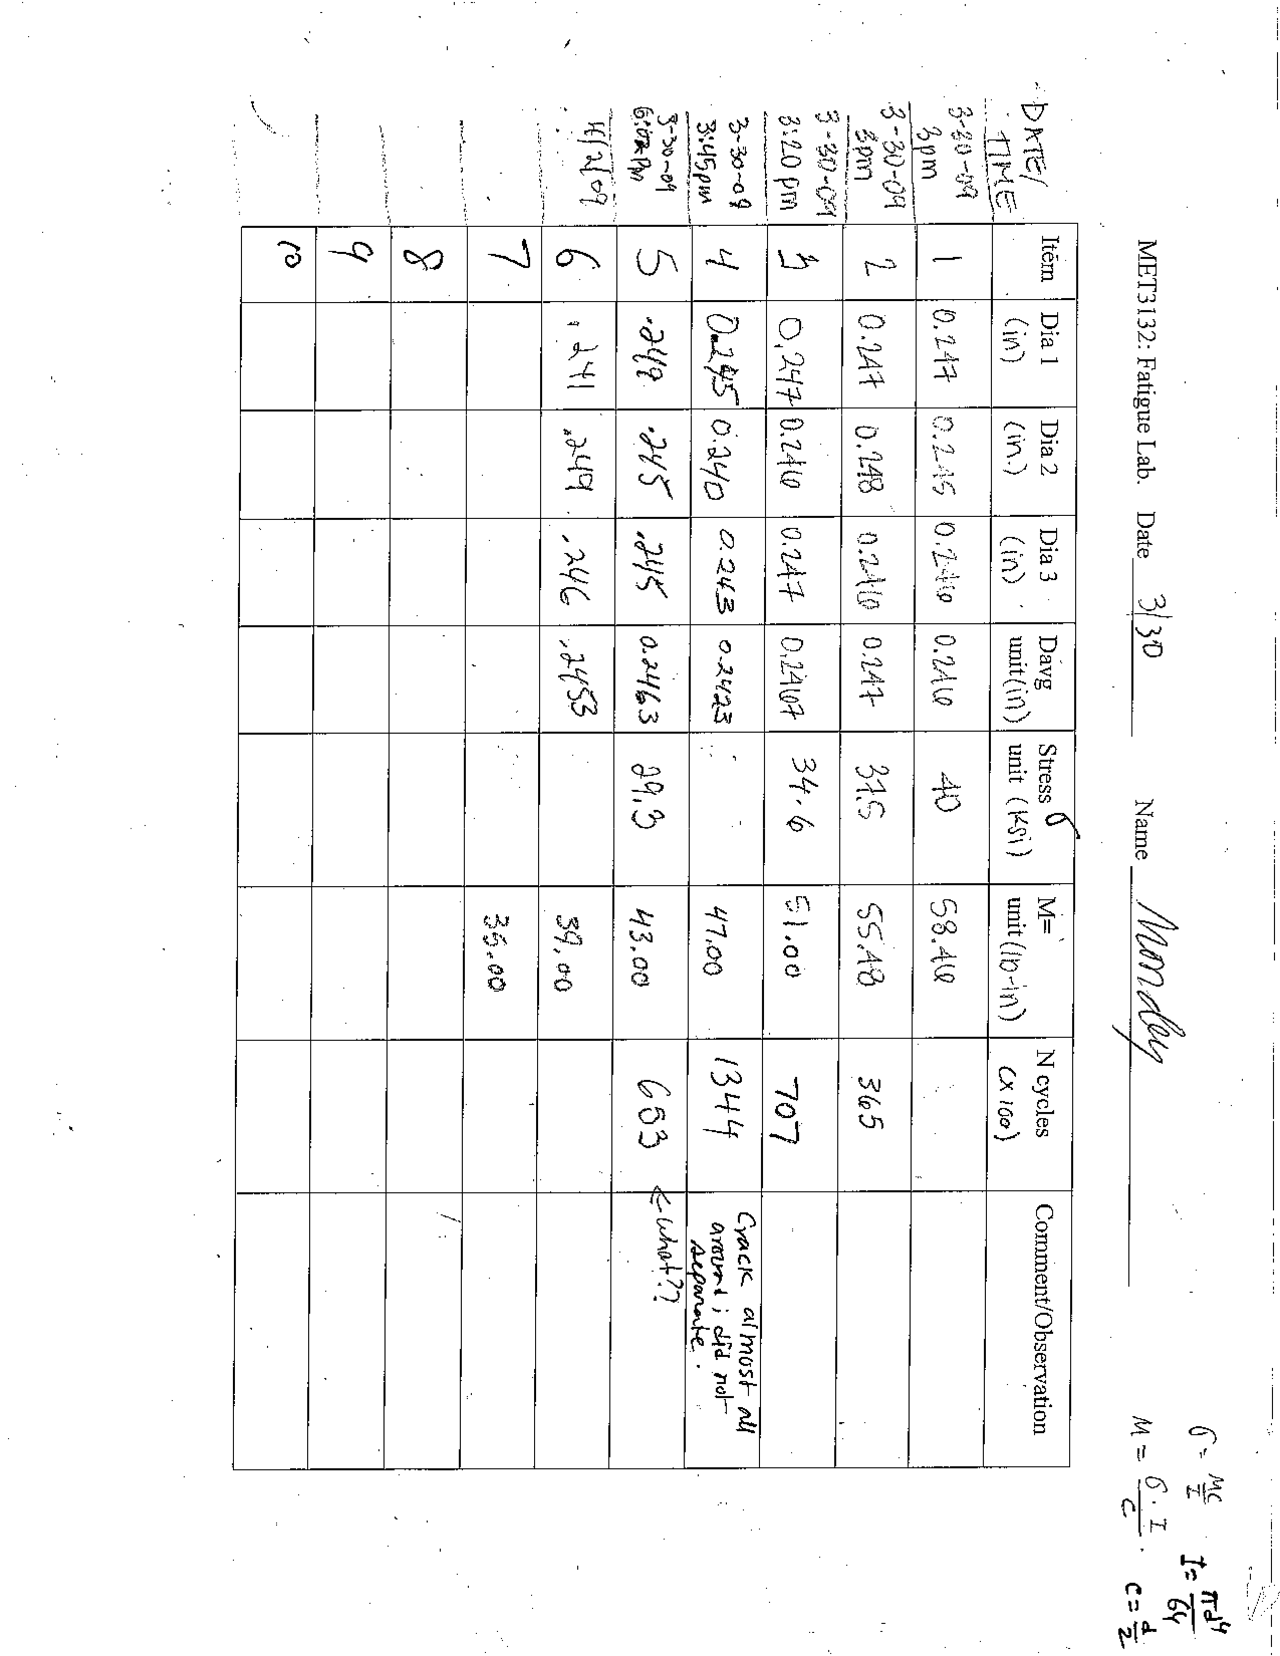 σ = MC/I I = πd⁴/64
MET3132: Fatigue Lab. Date 3/30 Name Monday M = σ·I/C . C = d/2
DATE/TIME Item Dia 1 (in) Dia 2 (in.) Dia 3 (in) Davg unit (in) Stress σ unit (ksi) M= unit (lb-in) N cycles (x100) Comment/Observation
3-30-09 3pm 1 0.247 0.245 0.246 0.246 40 58.46
3-30-09 3pm 2 0.247 0.248 0.246 0.247 37.5 55.48 365
3-30-09 3:20 pm 3 0.247 0.246 0.247 0.2467 34.6 51.00 707
3-30-09 3:45pm 4 0.245 0.240 0.243 0.2423 47.00 1344 Crack almost all around; did not separate.
3-30-09 5 .249 .245 .245 0.2463 29.3 43.00 653 ← what??
4/2/09 6 .241 .249 .246 .2453 39.00
7 35.00
8
9
10